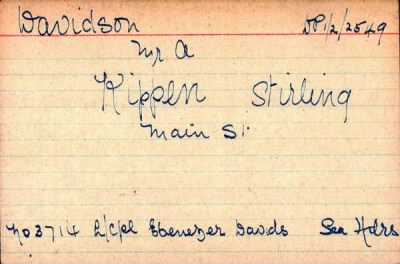 Davidson DP1/2/2549
Mr A
Kippen Stirling
Main St.
No 3714 L/Cpl Ebenezer Davids Sea Hdrs